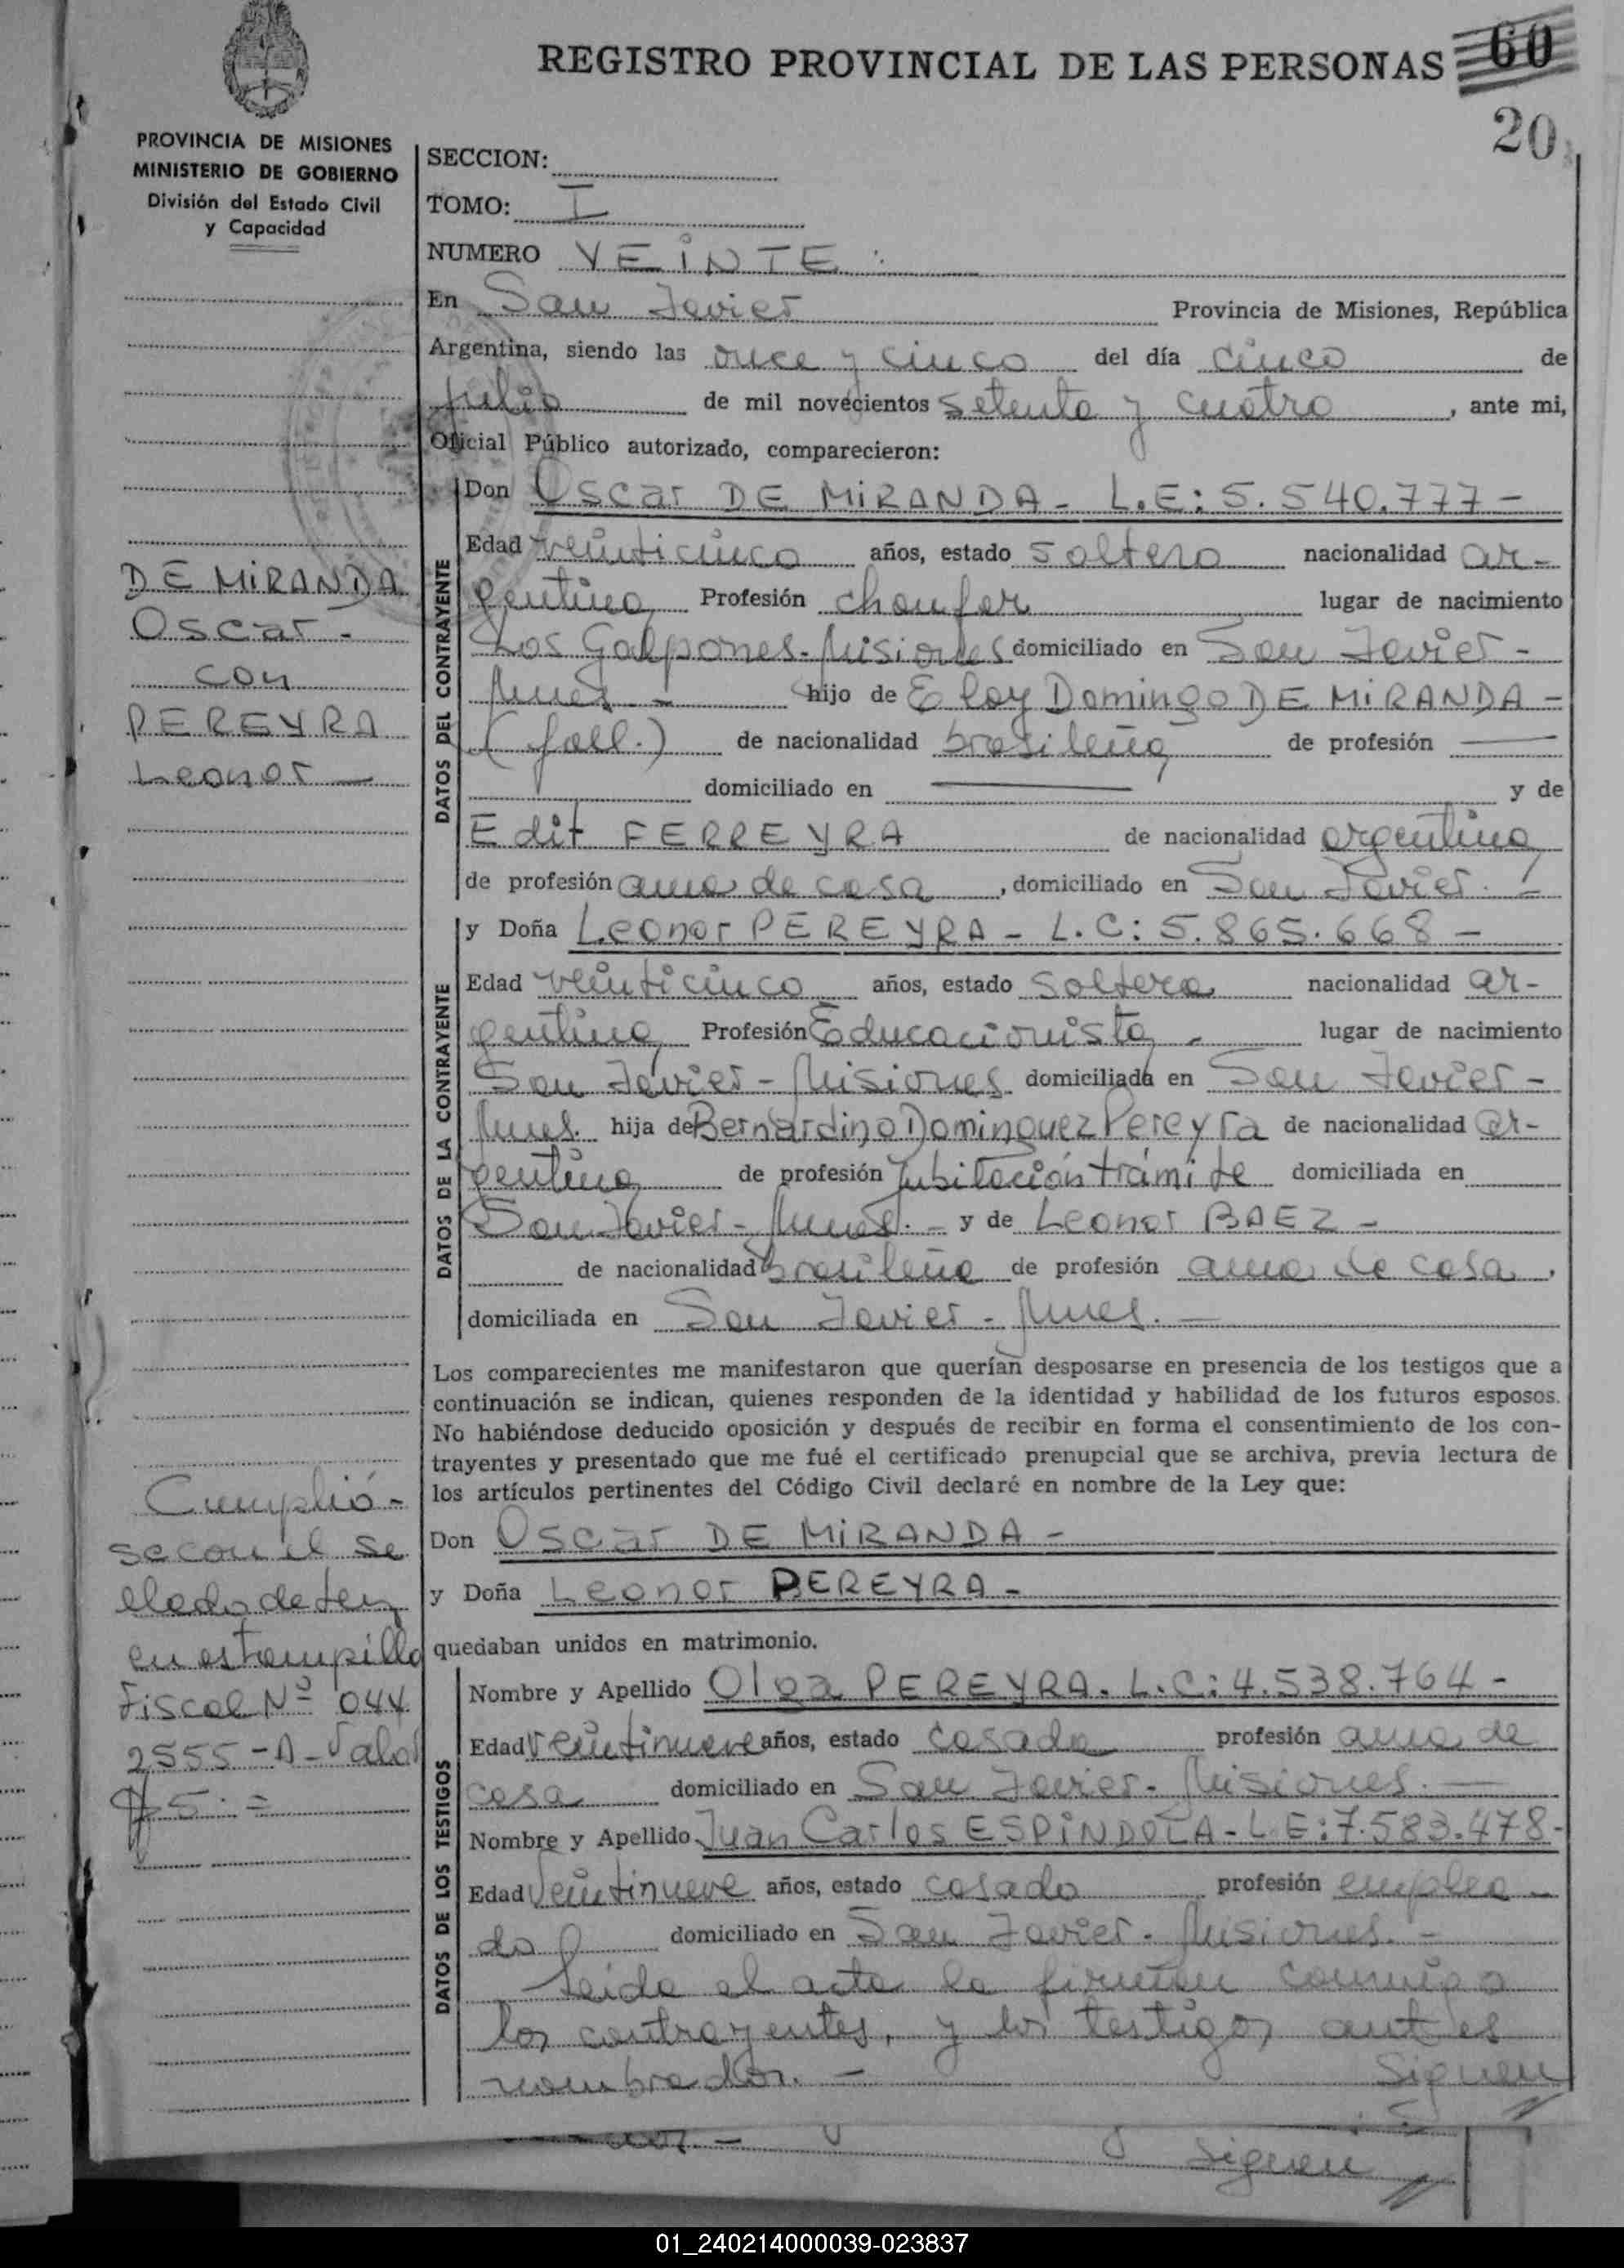 REGISTRO PROVINCIAL DE LAS PERSONAS 60
20
PROVINCIA DE MISIONES
MINISTERIO DE GOBIERNO
División del Estado Civil
y Capacidad
SECCION:
TOMO: I
NUMERO VEINTE :
En San Javier Provincia de Misiones, República
Argentina, siendo las once y cinco del día cinco de
julio de mil novecientos setenta y cuatro, ante mi,
Oficial Público autorizado, comparecieron:
DATOS DEL CONTRAYENTE
Don Oscar DE MIRANDA - L.E: 5.540.777 -
Edad veinticinco años, estado soltero nacionalidad ar-
gentina Profesión choufer lugar de nacimiento
Los Galpones - Misiones domiciliado en San Javier -
Mnes. - hijo de Eloy Domingo DE MIRANDA -
(fall.) de nacionalidad brasileña de profesión —
domiciliado en — y de
Edit FERREYRA de nacionalidad argentina
de profesión ama de casa, domiciliado en San Javier. -
DE MIRANDA
Oscar -
con
PEREYRA
Leonor —
DATOS DE LA CONTRAYENTE
y Doña Leonor PEREYRA - L.C: 5.865.668 -
Edad veinticinco años, estado soltera nacionalidad ar-
gentina Profesión Educacionista - lugar de nacimiento
San Javier - Misiones domiciliada en San Javier -
Mnes. hija de Bernardino Dominguez Pereyra de nacionalidad ar-
gentina de profesión Jubilación trámite domiciliada en
San Javier - Mnes. - y de Leonor BAEZ -
de nacionalidad brasileña de profesión ama de casa,
domiciliada en San Javier - Mnes. —
Los comparecientes me manifestaron que querían desposarse en presencia de los testigos que a
continuación se indican, quienes responden de la identidad y habilidad de los futuros esposos.
No habiéndose deducido oposición y después de recibir en forma el consentimiento de los con-
trayentes y presentado que me fué el certificado prenupcial que se archiva, previa lectura de
los artículos pertinentes del Código Civil declaré en nombre de la Ley que:
Don Oscar DE MIRANDA -
y Doña Leonor PEREYRA -
quedaban unidos en matrimonio.
Cumplió-
se con el se
llado de ley
en estampilla
Fiscal Nº 044
2555-A-Valor
$ 5. =
DATOS DE LOS TESTIGOS
Nombre y Apellido Olga PEREYRA. L.C: 4.538.764 -
Edad Veintinueve años, estado casada profesión ama de
casa domiciliado en San Javier - Misiones. —
Nombre y Apellido Juan Carlos ESPINDOLA - L.E: 7.583.478 -
Edad Veintinueve años, estado casado profesión emplea-
do domiciliado en San Javier - Misiones. -
Leída el acta la firman conmigo
los contrayentes, y los testigos antes
nombrados. — Siguen
Siguen
01_240214000039-023837